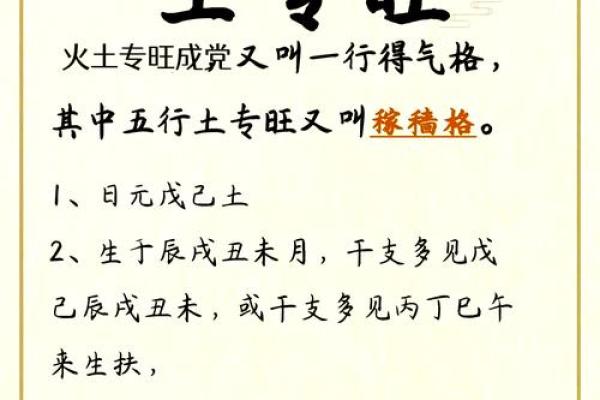 土专旺
火土专旺成党又叫一行得气格，
其中五行土专旺又叫稼穑格。
1、日元戊己土
2、生于辰戌丑未月，干支多见戊
己辰戌丑未，或干支多见丙丁巳午
来生扶，